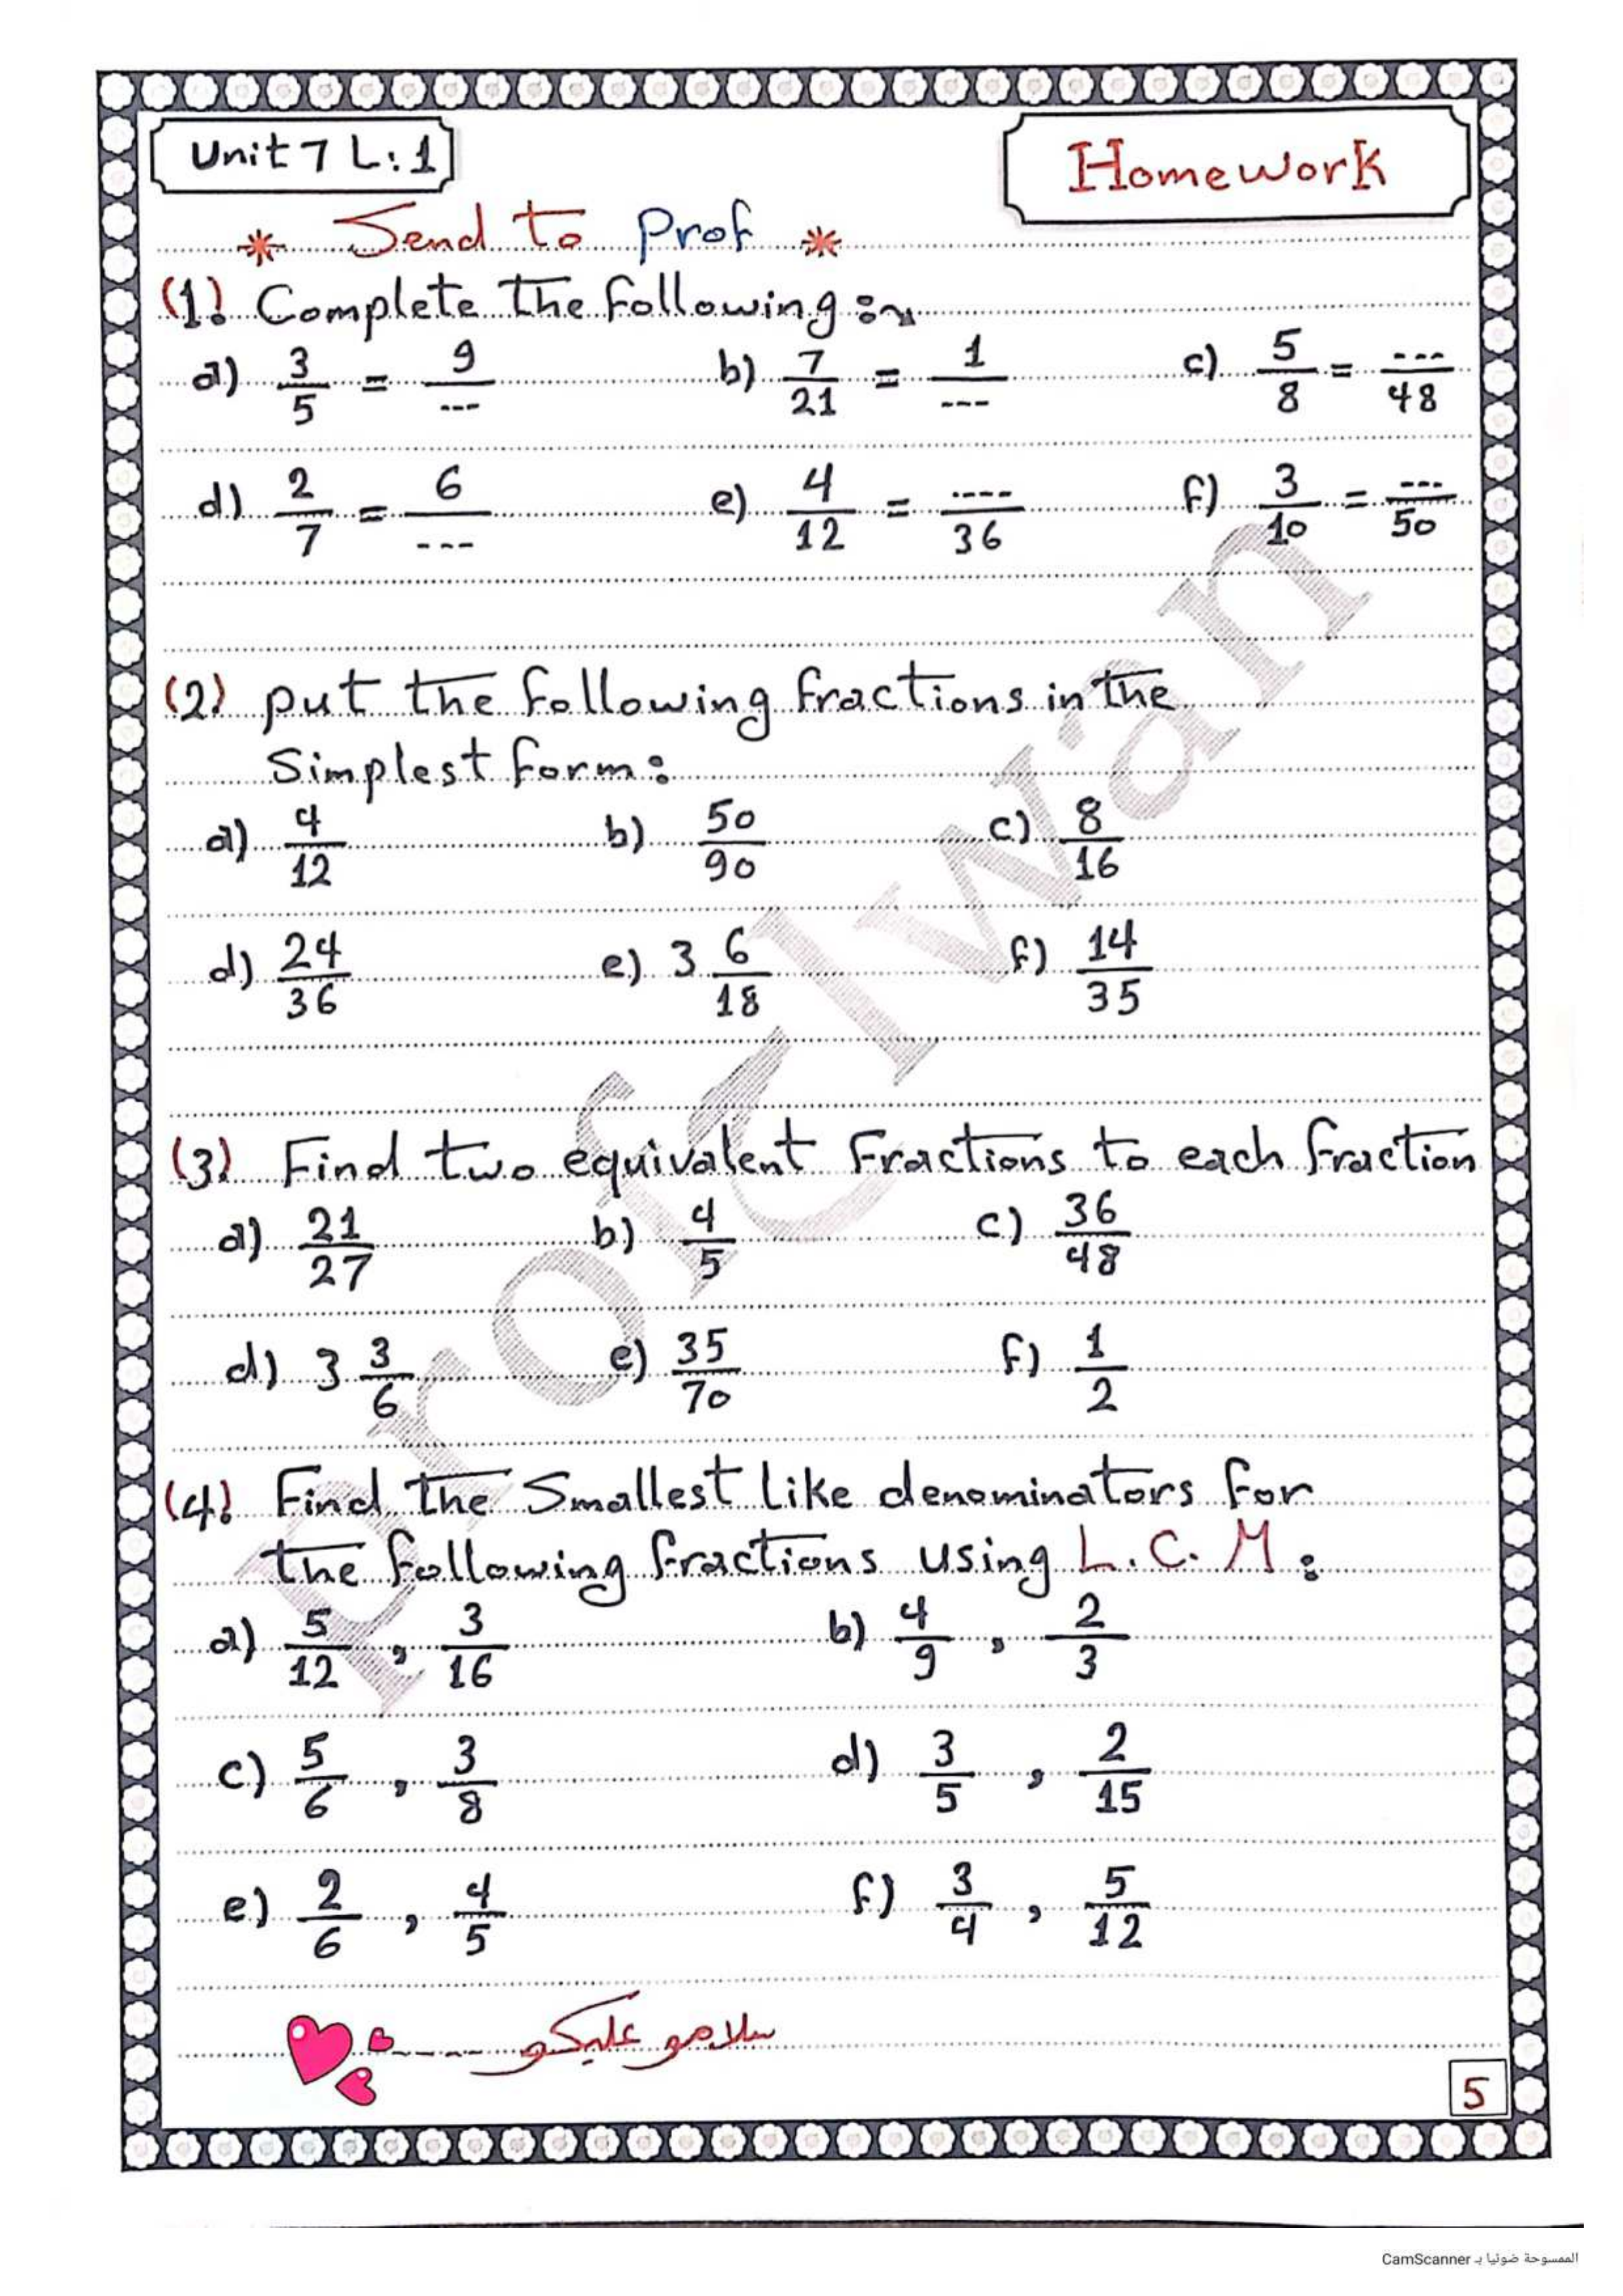 Unit 7 L: 1
Homework
* Send to Prof *
(1) Complete the following :
a) 3/5 = 9/--- b) 7/21 = 1/--- c) 5/8 = ---/48
d) 2/7 = 6/--- e) 4/12 = ----/36 f) 3/10 = ---/50
(2) put the following fractions in the
Simplest form :
a) 4/12 b) 50/90 c) 8/16
d) 24/36 e) 3 6/18 f) 14/35
(3) Find two equivalent Fractions to each fraction
a) 21/27 b) 4/5 c) 36/48
d) 3 3/6 e) 35/70 f) 1/2
(4) Find the Smallest like denominators for
the following fractions using L.C.M :
a) 5/12 , 3/16 b) 4/9 , 2/3
c) 5/6 , 3/8 d) 3/5 , 2/15
e) 2/6 , 4/5 f) 3/4 , 5/12
سلامو عليكو
5
Prof Elwan
الممسوحة ضوئيا بـ CamScanner